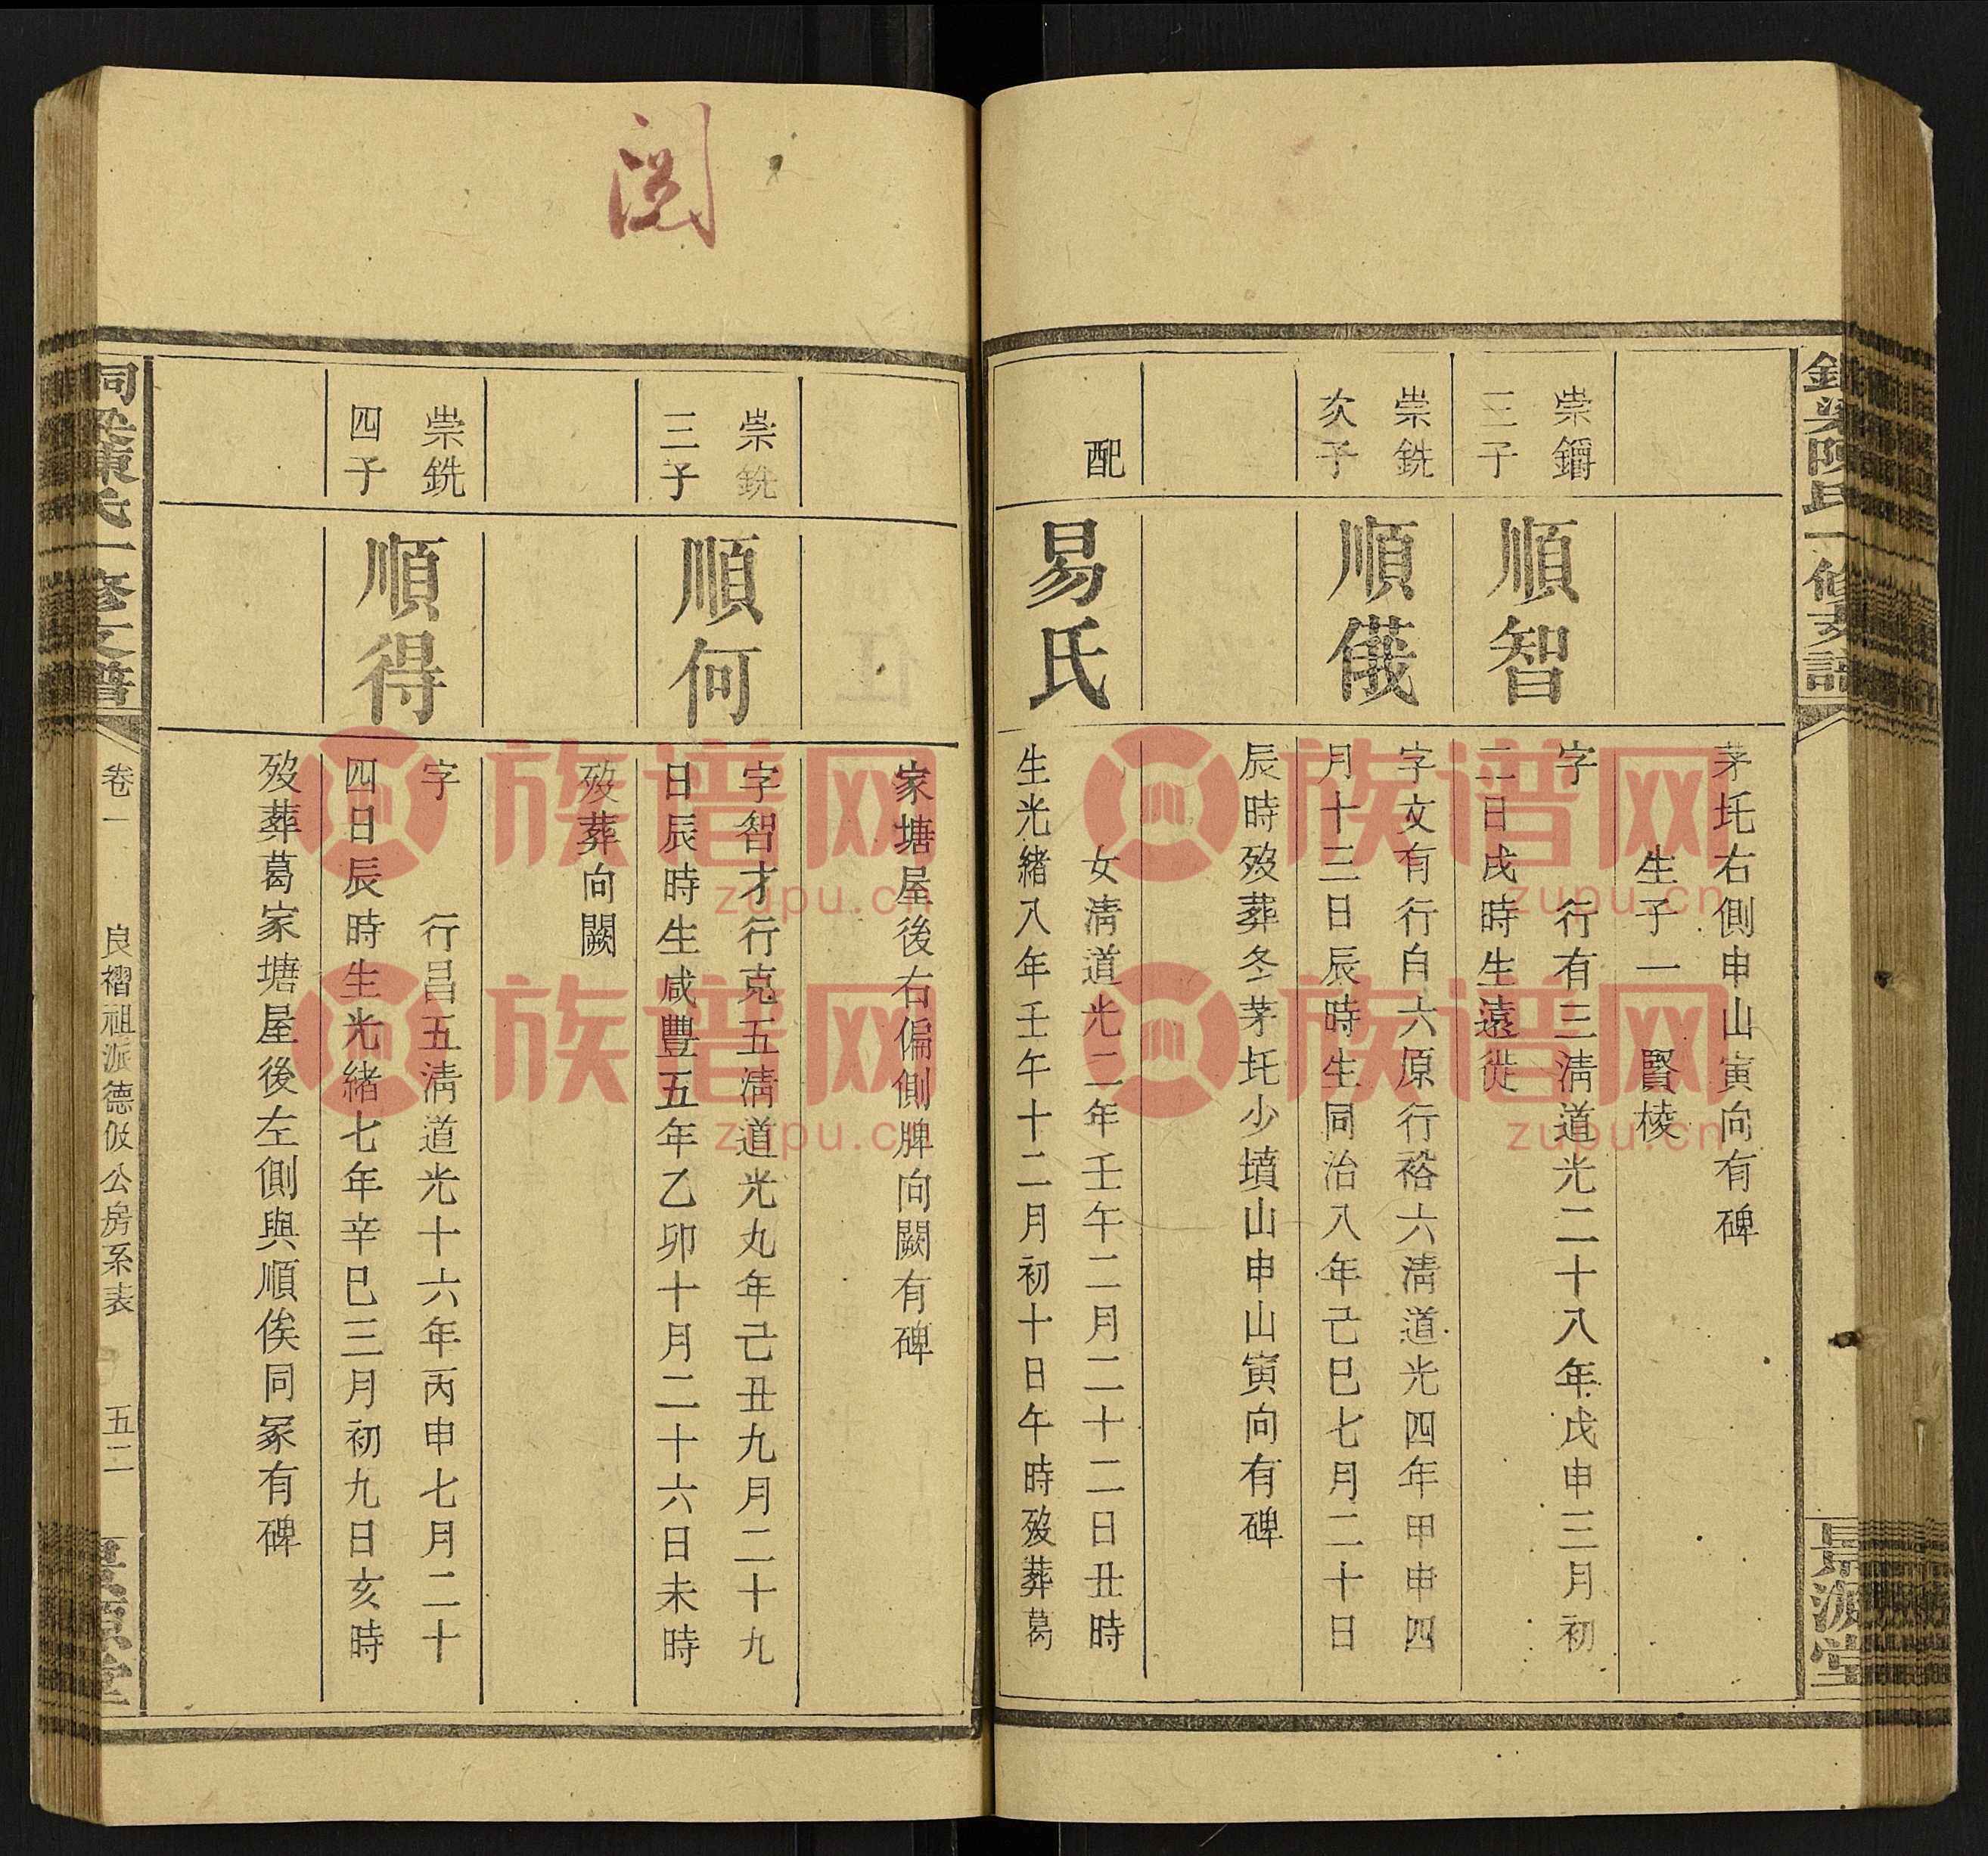 茅圫右側申山寅向有碑
生子一 賢棱
崇鑘
三子
順智
字 行有三淸道光二十八年戊申三月初
二日戌時生遠徙
崇銑
次子
順儀
字文有行白六原行裕六淸道光四年甲申四
月十三日辰時生同治八年己巳七月二十日
辰時歿葬冬茅圫少墳山申山寅向有碑
配
易氏
女淸道光二年壬午二月二十二日丑時
生光緒八年壬午十二月初十日午時歿葬葛
景源堂
閱
家塘屋後右偏側牌向闕有碑
崇銑
三子
順何
字智才行克五淸道光九年己丑九月二十九
日辰時生咸豐五年乙卯十月二十六日未時
歿葬向闕
崇銑
四子
順得
字 行昌五淸道光十六年丙申七月二十
四日辰時生光緒七年辛巳三月初九日亥時
歿葬葛家塘屋後左側與順俟同冢有碑
卷一
良褶祖派德攽公房系表
五二
族谱网
zupu.cn
族谱网
zupu.cn
族谱网
zupu.cn
族谱网
zupu.cn